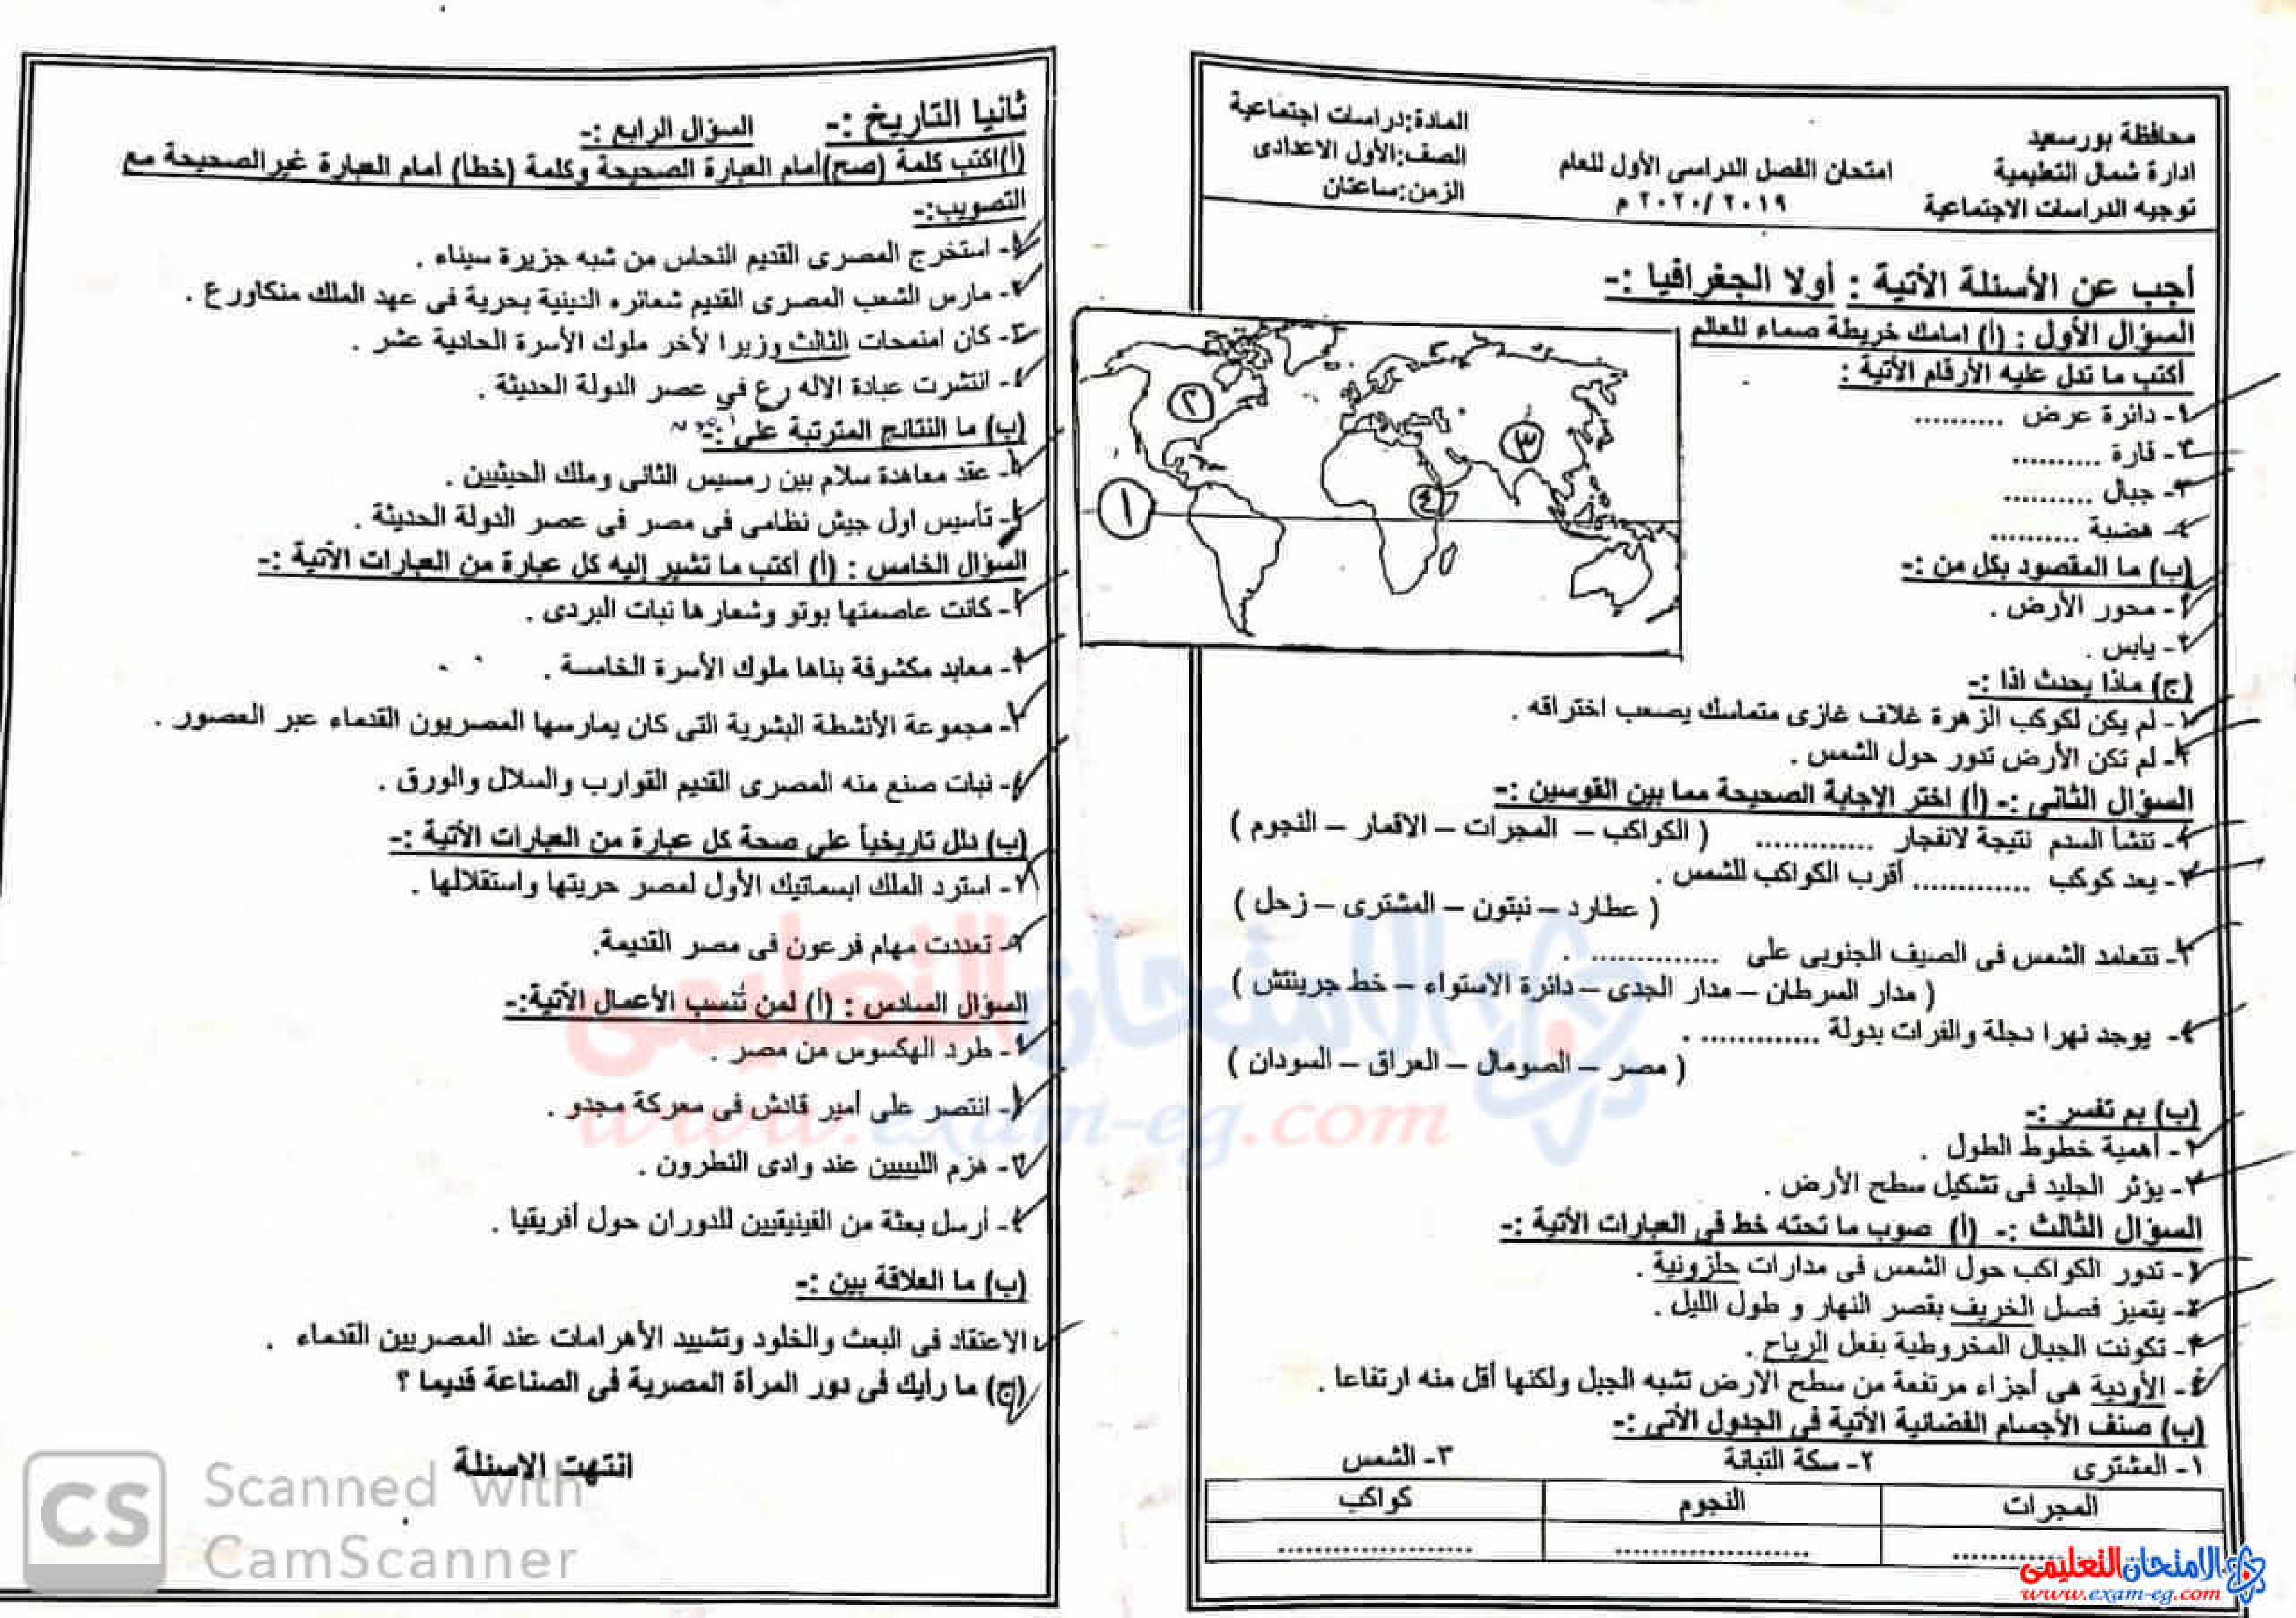 محافظة بورسعيد
ادارة شمال التعليمية
توجيه الدراسات الاجتماعية
امتحان الفصل الدراسى الأول للعام
٢٠١٩ /٢٠٢٠ م
المادة:دراسات اجتماعية
الصف:الأول الاعدادى
الزمن:ساعتان
أجب عن الأسئلة الأتية : أولا الجغرافيا :-
السؤال الأول : (أ) امامك خريطة صماء للعالم
أكتب ما تدل عليه الأرقام الأتية :
١- دائرة عرض ..........
٢- قارة ..........
٣- جبال ..........
٤- هضبة ..........
١
٢
٣
٤
(ب) ما المقصود بكل من :-
١- محور الأرض .
٢- يابس .
(ج) ماذا يحدث اذا :-
١- لم يكن لكوكب الزهرة غلاف غازى متماسك يصعب اختراقه .
٢- لم تكن الأرض تدور حول الشمس .
السؤال الثانى :- (أ) اختر الإجابة الصحيحة مما بين القوسين :-
١- تنشأ السدم نتيجة لانفجار ............. ( الكواكب – المجرات – الاقمار – النجوم )
٢- يعد كوكب ............. أقرب الكواكب للشمس .
( عطارد – نبتون – المشترى – زحل )
٣- تتعامد الشمس فى الصيف الجنوبى على .............. .
( مدار السرطان – مدار الجدى – دائرة الاستواء – خط جرينتش )
٤- يوجد نهرا دجلة والفرات بدولة ............. .
( مصر – الصومال – العراق – السودان )
(ب) بم تفسر :-
١- أهمية خطوط الطول .
٢- يؤثر الجليد فى تشكيل سطح الأرض .
السؤال الثالث :- (أ) صوب ما تحته خط فى العبارات الأتية :-
١- تدور الكواكب حول الشمس فى مدارات حلزونية .
٢- يتميز فصل الخريف بقصر النهار و طول الليل .
٣- تكونت الجبال المخروطية بفعل الرياح .
٤- الأودية هى أجزاء مرتفعة من سطح الارض تشبه الجبل ولكنها أقل منه ارتفاعا .
(ب) صنف الأجسام الفضائية الأتية فى الجدول الأتى :-
١- المشترى ٢- سكة التبانة ٣- الشمس
المجرات النجوم كواكب
.............. .................... ....................
ثانيا التاريخ :- السؤال الرابع :-
(أ)اكتب كلمة (صح)أمام العبارة الصحيحة وكلمة (خطأ) أمام العبارة غيرالصحيحة مع
التصويب:-
١- استخرج المصرى القديم النحاس من شبه جزيرة سيناء .
٢- مارس الشعب المصرى القديم شعائره الدينية بحرية فى عهد الملك منكاورع .
٣- كان امنمحات الثالث وزيرا لأخر ملوك الأسرة الحادية عشر .
٤- انتشرت عبادة الاله رع في عصر الدولة الحديثة .
(ب) ما النتائج المترتبة على :-
١- عقد معاهدة سلام بين رمسيس الثانى وملك الحيثيين .
٢- تأسيس اول جيش نظامى فى مصر فى عصر الدولة الحديثة .
السؤال الخامس : (أ) أكتب ما تشير إليه كل عبارة من العبارات الأتية :-
١- كانت عاصمتها بوتو وشعارها نبات البردى .
٢- معابد مكشوفة بناها ملوك الأسرة الخامسة .
٣- مجموعة الأنشطة البشرية التى كان يمارسها المصريون القدماء عبر العصور .
٤- نبات صنع منه المصرى القديم القوارب والسلال والورق .
(ب) دلل تاريخياً على صحة كل عبارة من العبارات الأتية :-
١- استرد الملك ابسماتيك الأول لمصر حريتها واستقلالها .
٢- تعددت مهام فرعون فى مصر القديمة.
السؤال السادس : (أ) لمن تُنسب الأعمال الأتية:-
١- طرد الهكسوس من مصر .
٢- انتصر على أمير قادش فى معركة مجدو .
٣- هزم الليبيين عند وادى النطرون .
٤- أرسل بعثة من الفينيقيين للدوران حول أفريقيا .
(ب) ما العلاقة بين :-
الاعتقاد فى البعث والخلود وتشييد الأهرامات عند المصريين القدماء .
(ج) ما رأيك فى دور المرأة المصرية فى الصناعة قديما ؟
انتهت الاسئلة
الامتحان التعليمى
www.exam-eg.com
CS
Scanned with
CamScanner
الامتحان التعليمى
www.exam-eg.com